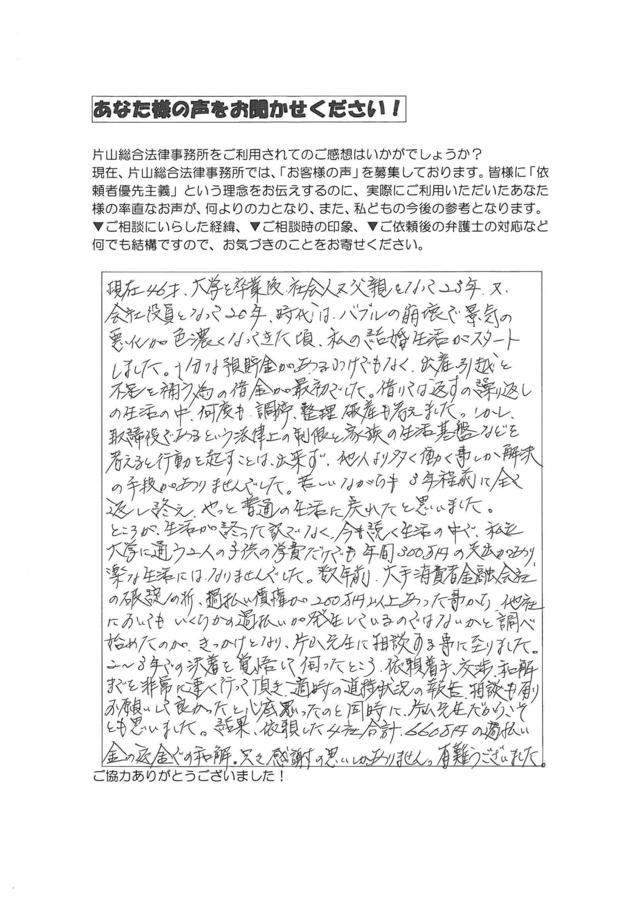 あなた様の声をお聞かせください！
片山総合法律事務所をご利用されてのご感想はいかがでしょうか？
現在、片山総合法律事務所では、「お客様の声」を募集しております。皆様に「依
頼者優先主義」という理念をお伝えするのに、実際にご利用いただいたあなた
様の率直なお声が、何よりの力となり、また、私どもの今後の参考となります。
▼ご相談にいらした経緯、▼ご相談時の印象、▼ご依頼後の弁護士の対応など
何でも結構ですので、お気づきのことをお寄せください。
現在46才、大学を卒業後、社会人又父親となって23年、又
会社役員となって20年、時代は、バブルの崩壊で景気の
悪化が色濃くなってきた頃、私の結婚生活がスタート
しました。十分な預貯金があるわけでもなく、出産、引越と
不足を補う為の借金が最初でした。借りては返すの繰り返し
の生活の中、何度も、調停、整理、破産も考えました。しかし、
取締役であるという法律上の制限と家族の生活基盤などを
考えると行動を起すことは、出来ず、他人より多く働く事しか解決
の手段がありませんでした。苦しいながらも3年程前に全て
返し終え、やっと普通の生活に戻れたと思いました。
ところが、生活が終った訳でなく、今も続く生活の中で、私立
大学に通う2人の子供の学費だけでも年間300万円の支出があり、
楽な生活にはなりませんでした。数年前、大手消費者金融会社
の破綻の折、過払い債権が200万円以上あった事から、他社
においてもいくらかの過払いが発生しているのではないかと調べ
始めたのが、きっかけとなり、片山先生に相談する事に至りました。
2～3年での決着を覚悟して伺ったところ、依頼着手、交渉、和解
までを非常に速く行って頂き、適時の進捗状況の報告、相談も有り
お願いして良かったと心底思ったのと同時に、片山先生だからこそ
とも思いました。結果、依頼した4社合計、660万円の過払い
金の返金での和解。只々感謝の思いしかありません。有難うございました。
ご協力ありがとうございました！